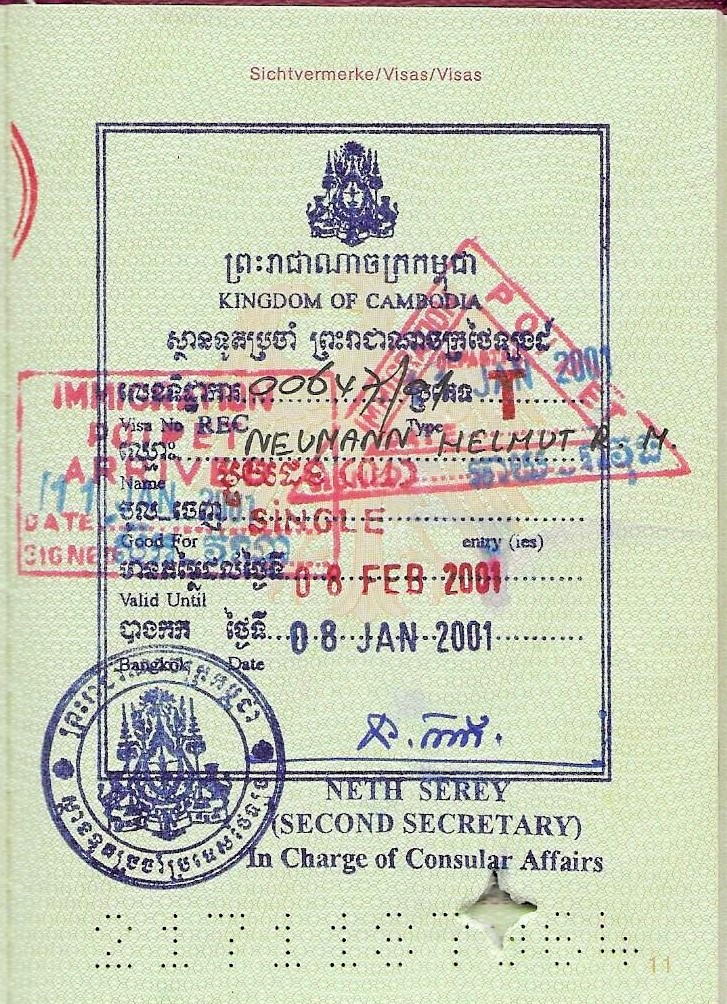 Sichtvermerke/Visas/Visas
ព្រះរាជាណាចក្រកម្ពុជា
KINGDOM OF CAMBODIA
ស្ថានទូតប្រចាំ ព្រះរាជាណាចក្រថៃឡង់ដ៍
លេខទិដ្ឋាការ 00647/01 ប្រភេទ T
Visa No REC Type
ឈ្មោះ NEUMANN HELMUT R. M.
Name
មួយដង (01)
ចូល_ចេញ SINGLE
Good For entry (ies)
មានតម្លៃដល់ថ្ងៃទី 08 FEB 2001
Valid Until
បាងកក ថ្ងៃទី 08 JAN 2001
Bangkok Date
NETH SEREY
(SECOND SECRETARY)
In Charge of Consular Affairs
IMMIGRATION
POIPET
ARRIVED
11 JAN 2001
DATE
SIGNED
POIPET
JAN 2001
11